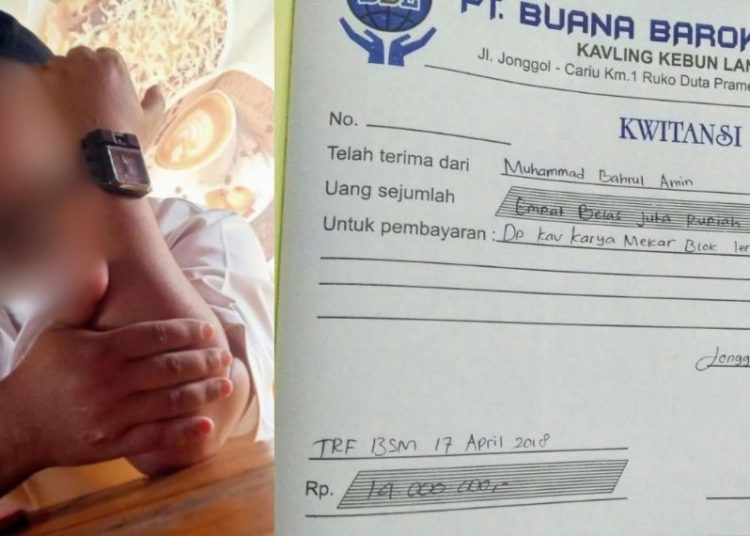 PT. BUANA BAROK
KAVLING KEBUN LAN
Jl. Jonggol - Cariu Km.1 Ruko Duta Prame
No.
KWITANSI
Telah terima dari Muhammad Bahrul Amin
Uang sejumlah Empat Belas Juta Rupiah
Untuk pembayaran : Dp kav Karya Mekar Blok
Jongg
TRF BSM 17 April 2018
Rp. 14.000.000,-